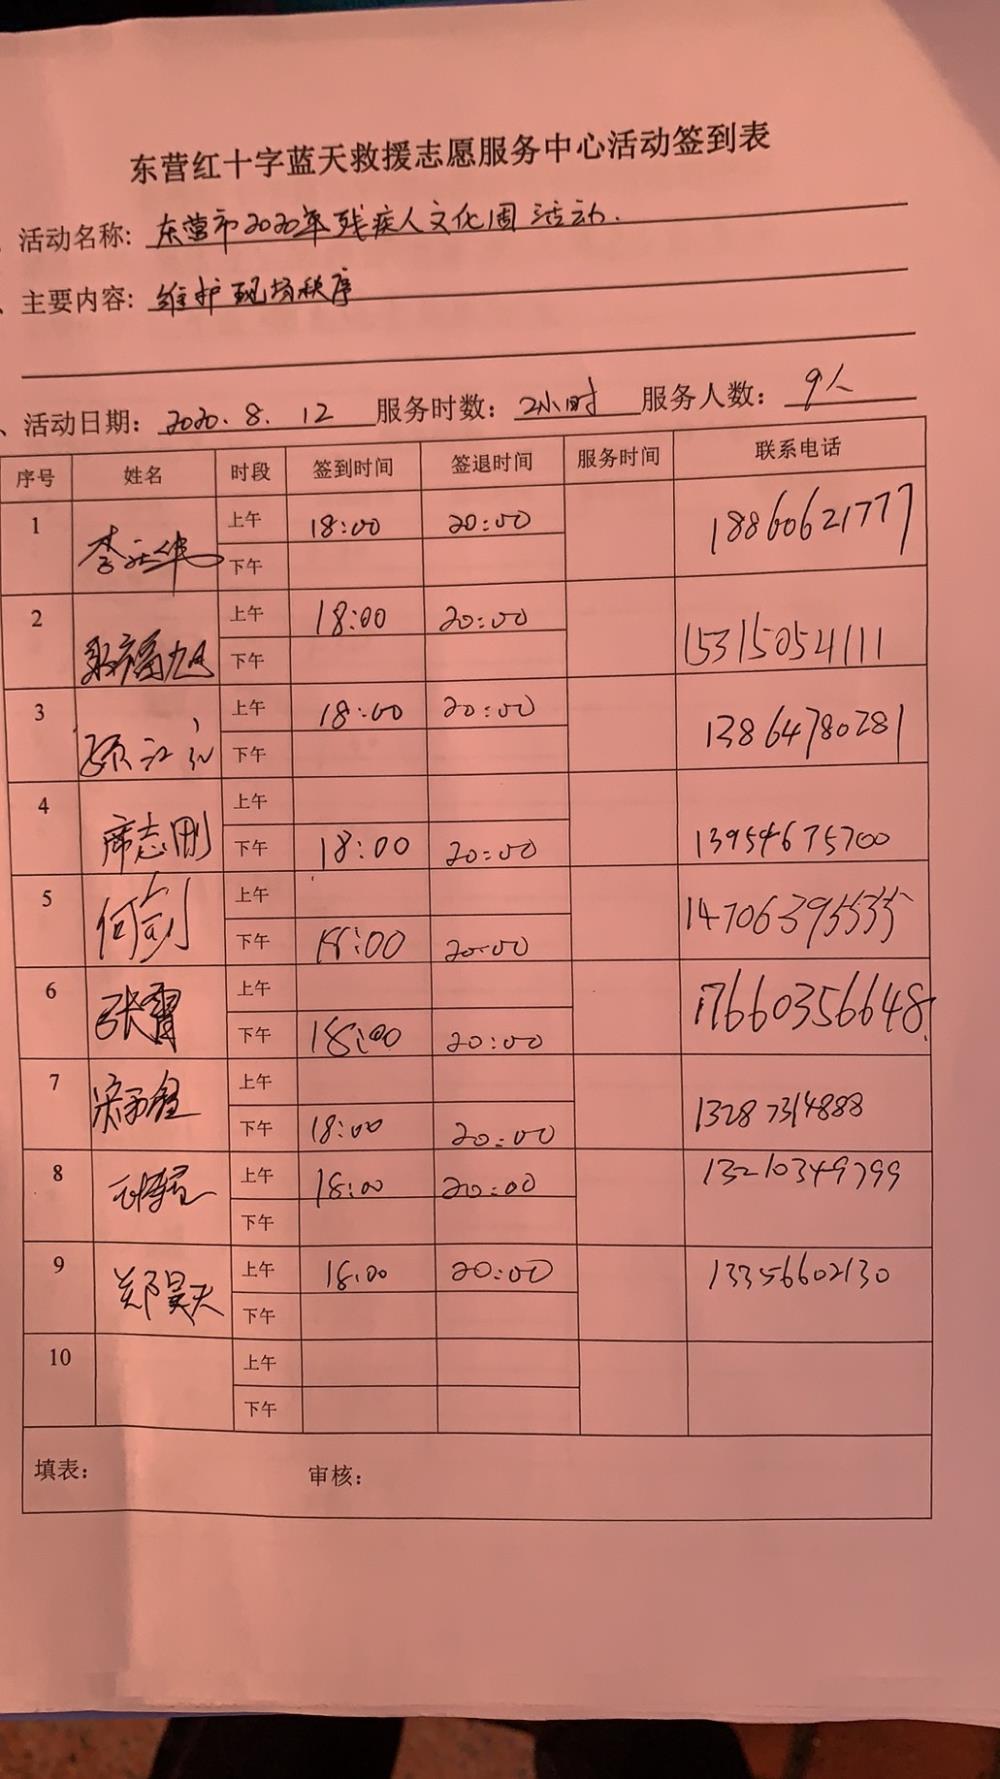 东营红十字蓝天救援志愿服务中心活动签到表
、活动名称: 东营市2020年残疾人文化周活动.
、主要内容: 维护现场秩序
、活动日期: 2020.8.12 服务时数: 2小时 服务人数: 9人
序号 姓名 时段 签到时间 签退时间 服务时间 联系电话
1 上午 18:00 20:00 18860621777
下午
2 上午 18:00 20:00 15315054111
下午
3 上午 18:00 20:00 13864780281
下午
4 席志刚 上午
下午 18:00 20:00 13954675700
5 何剑 上午
下午 18:00 20:00 14706395535
6 张霄 上午
下午 18:00 20:00 17660356648.
7 上午
下午 18:00 20:00 13287314888
8 上午 18:00 20:00 13210349799
下午
9 郑昊天 上午 18:00 20:00 13356602130
下午
10 上午
下午
填表: 审核: